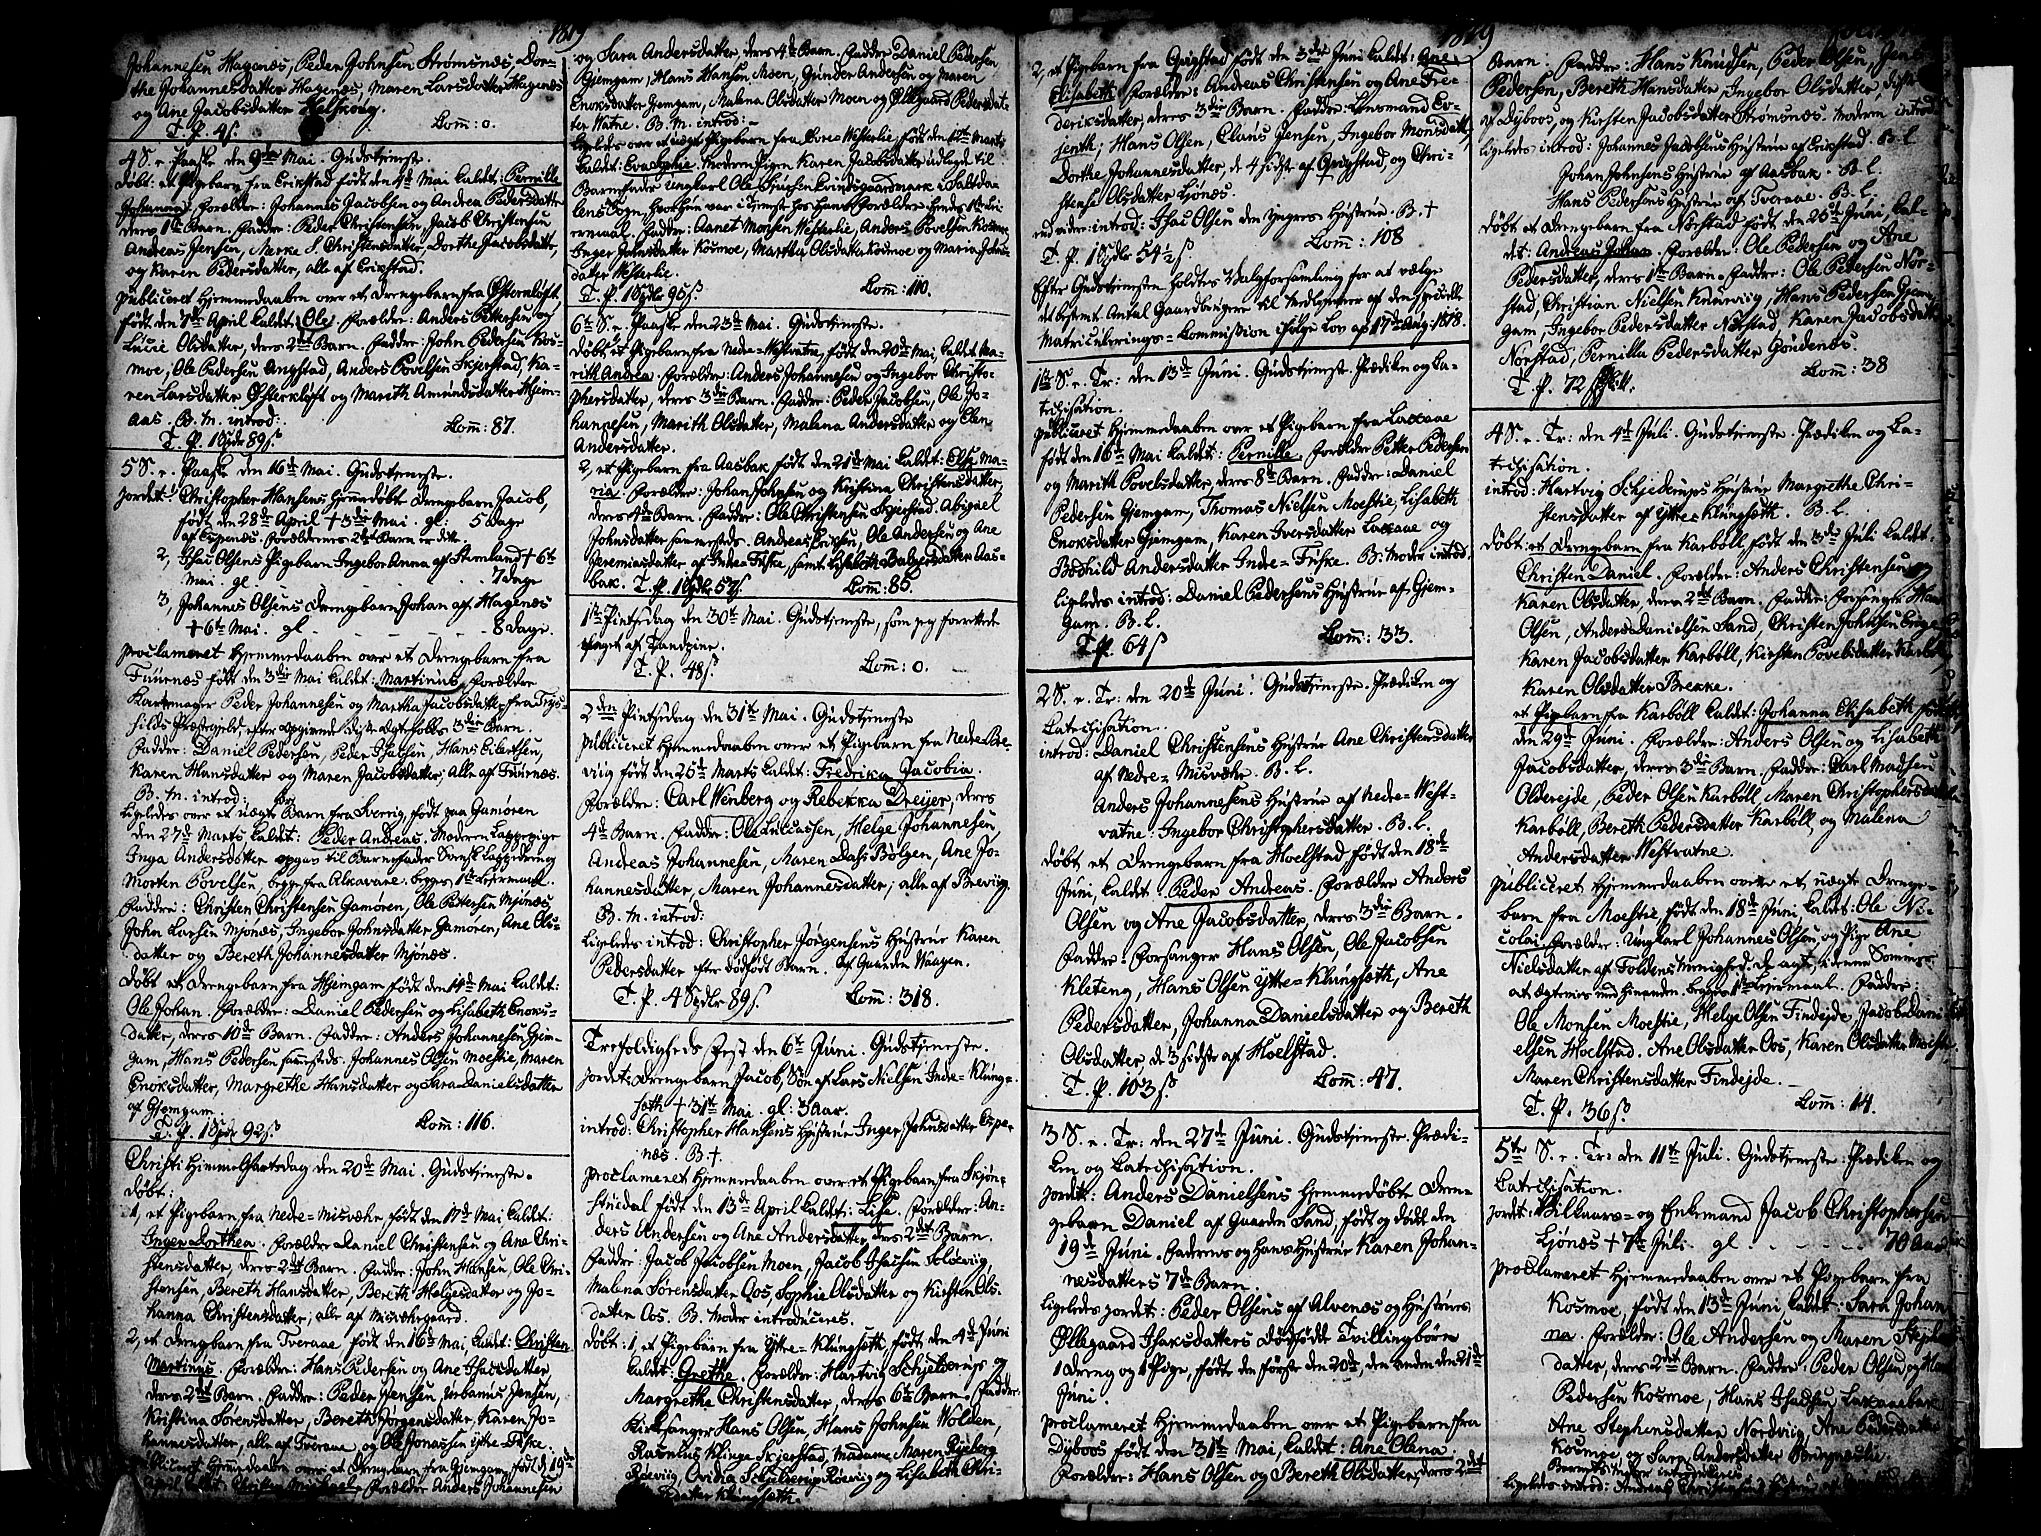 1819
Johannesen Hagenæs, Peder Johnsen Strømsnæs, Dor-
the Johannesdatter Hagenæs, Maren Larsdatter Hagenæs
og Ane Jacobsdatter
T. P. 4 s. Com: 0.
4 S. e. Paaske den 9de Mai. Gudstjeneste.
Døbt: et Pigebarn fra Erikstad født den 4de Mai kaldet: Pernille
Johanna. Forældre: Johannes Jacobsen og Andrea Pedersdatter
deres 1te Barn. Faddre: Peder Christensen, Jacob Christensen,
Andreas Jensen, Merke S Christensdatter, Dorthe Jacobsdatter,
og Karen Pedersdatter, alle af Erikstad.
publiceret Hjemmedaaben over et Drengebarn fra Østerkløft
født den 7de April kaldet: Ole. Forældre: Anders Pettersen og
Lucie Olsdatter, deres 2det Barn. Faddre: John Pedersen Kos-
moe, Ole Pedersen Angstad, Anders Povelsen Skjerstad, Ka-
ren Larsdatter Østerkløft og Marith Amundsdatter Hjem-
aas. B. M. introd:
T. P. 1 Spdr 89 s. Com: 87.
5 S. e. Paaske den 16de Mai. Gudstjeneste.
Jordet: Christopher Hansens hjemmedøbt Drengebarn Jacob,
født den 28de April + 3die Mai. gl: 5 Dage
af Espenæs. Forældrenes 2det Barn er dette.
2, Isai Olsens Pigebarn Ingebor Anna af Storland + 6te
Mai. gl 7 dage
3, Johannes Olsens Drengebarn Johan af Hagenæs
+ 6te Mai. gl 8 dage.
proclameret Hjemmedaaben over et Drengebarn fra
Fuurnæs født den 3die Mai kaldet: Martinus. Forældre
Peder Johannesen og Martha Jacobsdatter fra Trys-
hilds Præstegjeld, efter opgivende Ægtefolks 3die Barn.
Faddre: Daniel Pedersen, Peder Isachsen, Hans Eilertsen,
Karen Hansdatter og Maren Jacobsdatter, alle af Fuurnæs.
B. M. introd:
Ligeledes over et uægte Barn fra Sverrig, født paa Gamøren
den 27de Marts kaldet: Peder Andreas. Moderen Lappepige
Inga Andersdatter opgav til Barnefader Svensk Lappedreng
Morten Povelsen, begge fra Alkavare. begges 1te Lejermaal.
Faddre: Christen Christensen Gamøren, Ole Pettersen Mjønæs
John Larsen Mjønæs, Ingebor Johnsdatter Gamøren, Ane Ols-
datter og Bereth Johannesdatter Mjønæs.
Døbt et Drengebarn fra Gjemgam født den 14de Mai kaldet:
Ole Johan. Forældre: Daniel Pedersen og Lisabeth Enoks-
datter, deres 10de Barn. Faddre: Anders Johannesen Gjem-
gam, Hans Pedersen sammesteds. Johannes Olsen Moestie, Maren
Enoksdatter, Margrethe Hansdatter og Sara Danielsdatter
af Gjemgam.
T. P. 1 Spdr 92 s. Com: 116.
Christi Himmelfartsdag den 20de Mai. Gudstjeneste.
Døbt:
1, et Pigebarn fra Nedre-Misvæhr født den 17de Mai kaldet:
Inger Dorthea. Forældre Daniel Christensen og Ane Chri-
stensdatter, deres 2det Barn. Faddre: John Hansen, Ole Chri-
stensen, Bereth Hansdatter, Bereth Helgesdatter og Jo-
hanna Christensdatter, alle af Misvæhrgaard.
2, et Drengebarn fra Tveraae født den 16de Mai, kaldet: Christen
Martinus. Forældre: Hans Pedersen og Ane Isacsdatter,
deres 2det Barn. Faddre: Peder Jensen, Urbanus Jensen,
Kristina Sørensdatter, Bereth Jørgensdatter, Karen Jo-
hannesdatter, alle af Tveraae, og Ole Jonassen Ytre-Fiske.
publiceret Hjemmedaaben over et Drengebarn fra Gjemgam, født d: 19de
April kaldet: Christen Michael. Forældre Anders Johannesen
og Sara Andersdatter, deres 4de Barn. Faddre Daniel Pedersen
Gjemgam, Hans Hansen Moen, Gunder Andersen og Maren
Enoksdatter Gjemgam, Malena Olsdatter Moen og Øllegaard Pedersdat-
ter Vatne. B. M. introd:
Ligeledes over et uægte Pigebarn fra Vesterlie, født den
kaldet: Eva Sophie. Moderen Pigen Karen Jacobsdatter udlagde til
Barnefader Ungkarl Ole Evindsgaardmark i Saltda-
lens Sogn, hvor hun var i Tjeneste hos hans Forældre. hendes 1te Lei-
ermaal. Faddre: Aanet Monsen Vesterlie, Anders Povelsen Kosmoe
Inger Johnsdatter Kosmoe, Martha Olsdatter Kosmoe og Maria Johns-
datter Vesterlie.
T. P. 1 Spdlr 95 s. Com: 110.
6te S. e. Paaske den 23de Mai. Gudstjeneste.
Døbt, et Pigebarn fra Nedre-Vestvatne, født den 20de Mai, kaldet Ma-
rith Andrea. Forældre: Anders Johannesen og Ingebor Christo-
phersdatter, deres 3die Barn. Faddre: Peder Jacobsen, Ole Jo-
hannesen, Marith Olsdatter, Malena Andersdatter og Elen
Andersdatter.
2, et Pigebarn fra Aasbak født den 21de Mai kaldet: Else Ma-
ria. Forældre: Johan Johnsen og Kristina Christensdatter,
deres 4de Barn. Faddre: Ole Christensen Skjerstad. Abigael
Johnsdatter sammesteds. Andreas Eriksen, Ole Andersen og Ane
Jeremiasdatter af Indre Fiske, samt Lisabeth Baltzersdatter Aas-
bak. T. P. 1 Spdlr 57 s. Com: 85.
1te Pintsdag den 30te Mai. Gudstjeneste, som jeg forrettede
plaget af Tandpine.
T. P. 48 s. Com: 0.
2den Pintsdag den 31te Mai. Gudstjeneste
publiceret Hjemmedaaben over et Pigebarn fra Nede-Bre-
viig født den 25de Marts kaldet: Fredrika Jacobia.
Forældre: Carl Wenberg og Rebekka Dreyer, deres
4de Barn. Faddre: Ole Luccassen, Helge Johannesen,
Andreas Johannesen, Maren Dass Bolgen, Ane Jo-
hannesdatter, Maren Johannesdatter; alle af Breviig.
B. M. introd:
Ligeledes introd: Christopher Jørgensens Hustrue Karen
Pedersdatter efter dødfødt Barn. af Gaarden Vaagen.
T. P. 4 Spdlr 89 s. Com: 318.
Trefoldigheds Fest den 6te Juni. Gudstjeneste.
Jordet: Drengebarn Jacob, Søn af Lars Nielsen Indre-Klung-
sæth + 31te Mai. gl: 3 Aar.
introd: Christopher Hansens Hustrue Inger Johnsdatter Espe-
næs. B. +
proclameret Hjemmedaaben over et Pigebarn fra Skjøn-
stuedal født den 13de April kaldet: Lise. Forældre: An-
ders Andersen og Ane Andersdatter, deres 2det Barn.
Faddre: Jacob Jacobsen Moen, Jacob Isachsen Solsvig,
Malena Sørensdatter Oos, Sophie Olsdatter og Kirsten Ols-
datter Oos. B. Moder introduceres.
Døbt: 1, et Pigebarn fra Ytre-Klungsæth, født den 4de Juni
kaldet: Grethe. Forældre: Hartvig Schjelderups og
Margrethe Christensdatter, deres 6te Barn. Faddre:
Kirkesanger Hans Olsen, Hans Johnsen Volden,
Rasmus Klinge Skjerstad, Madame Maren Rysberg
Røevig, Ovidia Schjelderup Røevig og Lisabeth Chri-
stensdatter Klungsæth.
1819
2, et Pigebarn fra født den 3die Juni kaldet: Ane
Elisabeth. Forældre: Andreas Christensen og Ane Fre-
deriksdatter, deres 3die Barn. Faddre: Lensmand Co-
senth, Hans Olsen, Claus Jensen, Ingebor Monsdatter,
Dorthe Johannesdatter, de 4 sidst af, og Chri-
stense Olsdatter Ljønæs.
endvidere introd: Isai Olsen den Yngres Hustrue. B. +
T. P. 1 Spdlr 54½ s. Com: 108
Efter Gudstjenesten holdtes Valgforsamling for at vælge
det bestemte Antal Gaardbrugere til Medlemmer af den specielle
Matriculerings-Commission ifølge Lov af 17de Aug: 1818.
1te S. e. Tr: den 13de Juni. Gudstjeneste. Prædiken og Ca-
techisation.
publiceret Hjemmedaaben over et Pigebarn fra Laxaae
født den 16de Mai kaldet: Pernille. Forældre Petter Pedersen
og Marith Povelsdatter, deres 8de Barn. Faddre: Daniel
Pedersen Gjemgam, Thomas Nielsen Moestie, Lisabeth
Enoksdatter Gjemgam, Karen Iversdatter Laxaae og
Bodhild Andersdatter Indre-Fiske. B: Moder introd:
Ligeledes introd: Daniel Pedersens Hustrue af Gjem-
gam. B. L.
T. P. 64 s Com: 33.
2 S. e. Tr: den 20de Juni. Gudstjeneste. Prædiken og
Catechisation.
introd: Daniel Christensens Hustrue Ane Christensdatter
af Nedre-Misvæhr. B. L.
Anders Johannesens Hustrue af Nedre-Vest-
vatne. Ingebor Christophersdatter. B. L.
Døbt et Drengebarn fra Hoelstad født den 18de
Juni, kaldet: Peder Andreas. Forældre Anders
Olsen og Ane Jacobsdatter, deres 3die Barn.
Faddre: Forsanger Hans Olsen, Ole Jacobsen
Kleteng, Hans Olsen Ytre-Klungsæth, Ane
Pedersdatter, Johanna Danielsdatter og Bereth
Olsdatter, de 3 sidste af Hoelstad.
T. P. 103 s. Com: 47.
3 S. e. Tr: den 27de Juni. Gudstjeneste. Prædi-
ken og Catechisation.
Jordet: Anders Danielsens hjemmedøbte Dren-
gebarn Daniel af Gaarden Sand, født og død den
19de Juni. Faderens og hans Hustrue Karen Johan-
nesdatters 7de Barn.
Ligeledes jordet: Peder Olsens af Alvenæs og Hustrues
Øllegaard Isaksdatters dødfødte Tvillingbørn
1 Dreng og 1 Pige, fødte den første den 20de, den anden den 21de
Juni.
proclameret Hjemmedaaben over et Pigebarn fra
Dyboos født den 31te Mai, kaldet: Ane Olena.
Forældre: Hans Olsen og Bereth Olsdatter, deres 2det
Barn. Faddre: Hans Knudsen, Peder Olsen, Jens
Pedersen, Bereth Hansdatter, Ingebor Olsdatter, disse
af Dyboos, og Kirsten Jacobsdatter Strømsnæs. Moderen introd:
Ligeledes introd: Johannes Jacobsens Hustrue af Erikstad. B. L.
Johan Johnsens Hustrue af Aasbak. B. L.
Hans Pedersens Hustrue af Tveraae. B. L.
Døbt et Drengebarn fra Norstad født den 25de Juni, kal-
det: Andreas Johan. Forældre: Ole Pedersen og Ane
Pedersdatter, deres 1te Barn. Faddre: Ole Pedersen Nor-
stad, Christian Nielsen Knævig, Hans Pedersen Gjem-
gam, Ingebor Pedersdatter Norstad, Karen Jacobsdatter
Norstad, Pernilla Pedersdatter Gondenøs.
T. P. 72 Com: 38
4 S. e. Tr: den 4de Juli. Gudstjeneste. Prædiken og Ca-
techisation.
introd: Hartvig Schjelderups Hustrue Margrethe Chri-
stensdatter af Ytre-Klungsæth. B. L.
Døbt: et Drengebarn fra Karbøll, født den 3die Juli kaldet:
Christen Daniel. Forældre: Anders Christensen og
Karen Olsdatter, deres 2det Barn. Faddre: Forsanger Hans
Olsen, Anders Danielsen Sand, Christen Johnsen
Karen Jacobsdatter Karbøll, Kirsten Povelsdatter Karbøll,
Karen Olsdatter Brekke.
et Pigebarn fra Karbøll kaldet: Johanna Elisabeth født
den 29de Juni. Forældre: Anders Olsen og Lisabeth
Jacobsdatter, deres 3die Barn. Faddre: Carl Madsen
Oldereide, Peder Olsen Karbøll, Maren Christophersdatter
Karbøll, Bereth Pedersdatter Karbøll, og Malena
Andersdatter Vestvatne.
publiceret Hjemmedaaben over et uægte Drenge-
barn fra Moestie, født den 18de Juni, kaldet: Ole Ni-
colai. Forældre: Ungkarl Johannes Olsen, og Pige Ane
Nielsdatter af Foldens Menighed. De agte, i denne Sommer
at ægtevies med hinanden. begges 1te Lejermaal. Faddre:
Ole Monsen Moestie, Helge Olsen Findejde, Jacob Dani-
elsen Hoelstad. Ane Olsdatter Oos, Karen Olsdatter Moestie
Maren Christensdatter Findejde.
T. P. 36 s Com: 14.
5te S. e. Tr: den 11te Juli. Gudstjeneste. Prædiken og
Catechisation.
Jordet: Vilkaars- og Enkemand Jacob Christophersen
Ljønæs + 7de Juli. gl 70 Aar
proclameret Hjemmedaaben over et Pigebarn fra
Kosmoe, født den 13de Juni kaldet: Sara Johan-
na. Forældre: Ole Andersen og Maren Stephens-
datter, deres 2det Barn. Faddre: Peder Olsen, og Hans
Pedersen Kosmoe, Hans Isachsen Laxaaebak,
Ane Stephensdatter Nordviig, Ane Pedersdatter
Kosmoe, og Sara Andersdatter
Barnets Moder introduceres.
Ligeledes introd: Andreas Christensens Hustrue af